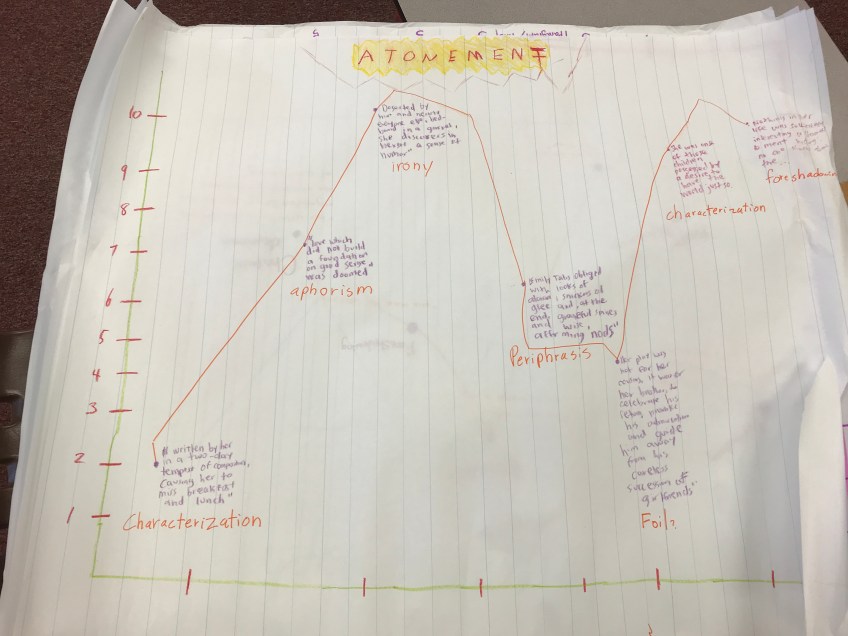 ATONEMENT
10
9
8
7
6
5
4
3
2
1
" written by her
in a two-day
tempest of composition,
causing her to
miss breakfast
and lunch"
Characterization
"love which
did not build
a foundation
on good sense
was doomed
aphorism
Described by
her and
in a
she discovers in
herself a sense of
humor"
irony
Emily Tallis obliged
with looks of
alarm, snickers of
glee and, at the
end, grateful smiles
and wise,
affirming nods"
Periphrasis
play was
not for her
cousins, it was for
her brother, to
celebrate his
return, provoke
his admiration
and guide
him away
from his
careless
succession of
girlfriends"
Foil?
She was one
of those
children
possessed by
a desire to
have the
world just so
Characterization
her
life was sufficiently
interesting or
foreshadowin